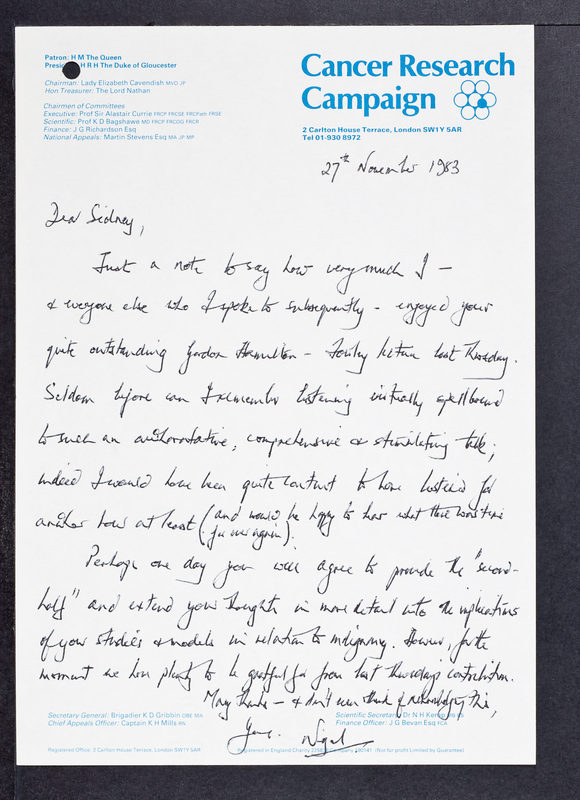 Patron: H M The Queen
Presid H R H The Duke of Gloucester
Chairman: Lady Elizabeth Cavendish MVO JP
Hon Treasurer: The Lord Nathan
Chairmen of Committees
Executive: Prof Sir Alastair Currie FRCP FRCSE FRCPath FRSE
Scientific: Prof K D Bagshawe MD FRCP FRCOG FRCR
Finance: J G Richardson Esq
National Appeals: Martin Stevens Esq MA JP MP
Cancer Research
Campaign
2 Carlton House Terrace, London SW1Y 5AR
Tel 01-930 8972
27th November 1983
Dear Sidney,
Just a note to say how very much I -
& everyone else who I spoke to subsequently - enjoyed your
quite outstanding Gordon Hamilton - Fairley lecture last Thursday.
Seldom before can I remember listening virtually spellbound
to such an authoritative, comprehensive & stimulating talk;
indeed I would have been quite content to have listened for
another hour at least (and would be happy to hear what there was time
for over again).
Perhaps one day you will agree to provide the "second-
half" and extend your thoughts in more detail into the implications
of your studies & models in relation to malignancy. However, for the
moment we have plenty to be grateful for from last Thursday's contribution.
Many thanks - & don't even think of acknowledging this,
Yours. Nigel
Secretary General: Brigadier K D Gribbin OBE MA
Chief Appeals Officer: Captain K H Mills RN
Scientific Secretary Dr N H Kemp
Finance Officer: J G Bevan Esq FCA
Registered Office: 2 Carlton House Terrace, London SW1Y 5AR
Registered in England Charity Company (Not for profit Limited by Guarantee)